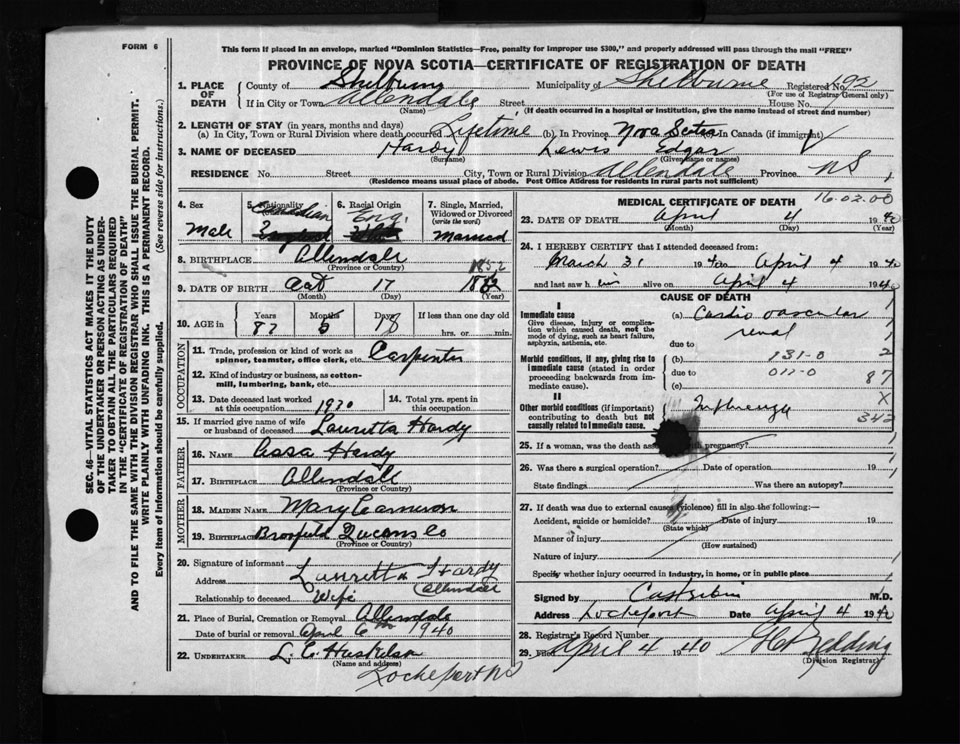 FORM 6
This form if placed in an envelope, marked "Dominion Statistics—Free, penalty for improper use $300," and properly addressed will pass through the mail "FREE"
PROVINCE OF NOVA SCOTIA—CERTIFICATE OF REGISTRATION OF DEATH
1. PLACE OF DEATH
County of Shelburne Municipality of Shelburne Registered No. 192
(For use of Registrar General only)
If in City or Town Allendale Street House No.
(Name) (If death occurred in a hospital or institution, give the name instead of street and number)
2. LENGTH OF STAY (in years, months and days)
(a) In City, Town or Rural Division where death occurred Lifetime (b) In Province Nova Scotia In Canada (if immigrant)
3. NAME OF DECEASED Hardy Lewis Edgar
(Surname) (Given name or names)
RESIDENCE No. Street City, Town or Rural Division Allendale Province NS
(Residence means usual place of abode. Post Office Address for residents in rural parts not sufficient)
4. Sex
Male
5. Nationality
Canadian
6. Racial Origin
Eng.
7. Single, Married, Widowed or Divorced
(write the word)
Married
8. BIRTHPLACE Allendale
(Province or Country)
1852
9. DATE OF BIRTH Oct 17
(Month) (Day) (Year)
10. AGE in Years Months Days If less than one day
87 5 18 hrs. or min.
OCCUPATION
11. Trade, profession or kind of work as spinner, teamster, office clerk, etc. Carpenter
12. Kind of industry or business, as cotton-mill, lumbering, bank, etc.
13. Date deceased last worked at this occupation. 1930
14. Total yrs. spent in this occupation.
15. If married give name of wife or husband of deceased Lauretta Hardy
FATHER
16. NAME Hardy
17. BIRTHPLACE Allendale
(Province or Country)
MOTHER
18. MAIDEN NAME Mary
19. BIRTHPLACE Brookfield Queens Co
(Province or Country)
20. Signature of informant Lauretta Hardy
Address Allendale
Relationship to deceased Wife
21. Place of Burial, Cremation or Removal Allendale
Date of burial or removal April 6th 1940
22. UNDERTAKER L. C. Huskilson
(Name and address)
Lockeport NS
MEDICAL CERTIFICATE OF DEATH
16.02.00
23. DATE OF DEATH April 4 1940
(Month) (Day) (Year)
24. I HEREBY CERTIFY that I attended deceased from:
March 31 1940 to April 4 1940
and last saw him alive on April 4 1940
CAUSE OF DEATH
I
Immediate cause
Give disease, injury or complication which caused death, not the mode of dying, such as heart failure, asphyxia, asthenia, etc.
(a) Cardio vascular renal
due to
Morbid conditions, if any, giving rise to immediate cause (stated in order proceeding backwards from immediate cause).
(b) 131-0
due to
(c)
2
87
X
II
Other morbid conditions (if important) contributing to death but not causally related to immediate cause.
342
25. If a woman, was the death associated with pregnancy?
26. Was there a surgical operation? Date of operation 19
State findings Was there an autopsy?
27. If death was due to external causes (violence) fill in also the following:—
Accident, suicide or homicide? Date of injury 19
(State which)
Manner of injury
(How sustained)
Nature of injury
Specify whether injury occurred in industry, in home, or in public place
Signed by M.D.
Address Lockeport Date April 4 1940
28. Registrar's Record Number
29. Filed April 4 1940
(Division Registrar)
SEC. 46—VITAL STATISTICS ACT MAKES IT THE DUTY
OF THE UNDERTAKER OR PERSON ACTING AS UNDERTAKER TO OBTAIN ALL THE PARTICULARS REQUIRED
IN THE "CERTIFICATE OF REGISTRATION OF DEATH"
AND TO FILE THE SAME WITH THE DIVISION REGISTRAR WHO SHALL ISSUE THE BURIAL PERMIT.
WRITE PLAINLY WITH UNFADING INK. THIS IS A PERMANENT RECORD.
Every item of Information should be carefully supplied. (See reverse side for instructions.)